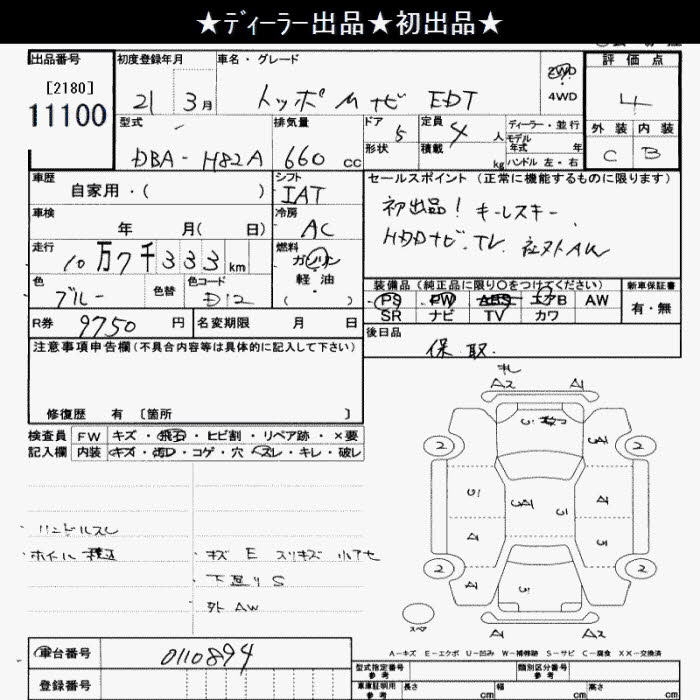 ★ディーラー出品★初出品★
出品番号
[2180]
11100
初度登録年月
21 3月
車名・グレード
トッポ M ナビ EDT
2WD
4WD
評価点
4
外装 内装
C B
型式
DBA-H82A
排気量
660 cc
ドア
5
定員
4 人
形状
積載
kg
ディーラー・並行
モデル
年式 年
ハンドル 左・右
車歴
自家用・( )
シフト
IAT
車検
年 月( 日)
冷房
AC
走行
10万7千333 km
燃料
ガソリン
軽油
( )
色
ブルー
色替
色コード
D12
R券 9750 円
名変期限 月 日
セールスポイント (正常に機能するものに限ります)
初出品! キーレスキー
HDDナビ. TV. 社外AW
装備品 (純正品に限り〇をつけてください)
新車保証書
PS PW ABS エアB AW
SR ナビ TV カワ
有・無
後日品
保 取.
注意事項申告欄 (不具合内容等は具体的に記入して下さい)
修復歴 有 〔箇所 〕
検査員
記入欄
FW キズ・飛石・ヒビ割・リペア跡・×要
内装 キズ・汚レ・コゲ・穴・スレ・キレ・破レ
ハンドルスレ
キズ E スリキズ 小アセ
下廻りS
外 AW
A2 A1
2 2
2 2
A1 A2
スペア
A-キズ E-エクボ U-凹み W-補修跡 S-サビ C-腐食 XX-交換済
車台番号
0110894
登録番号
型式指定番号
参考
類別区分番号
参考
車庫証明用
参考
長さ cm
幅 cm
高さ cm